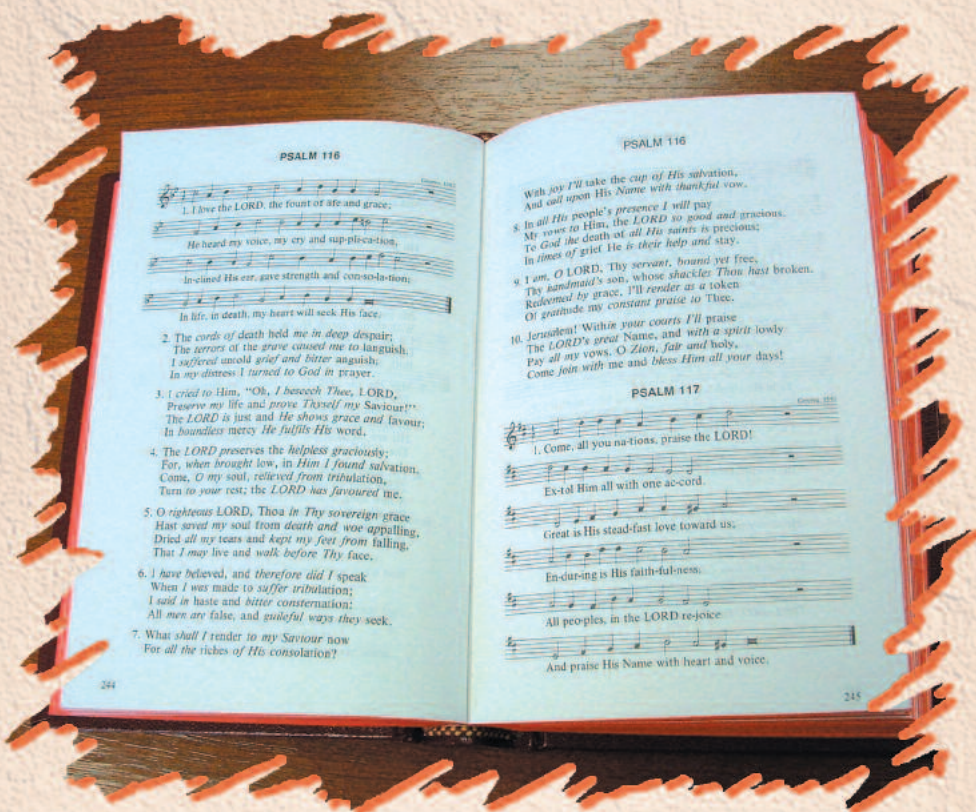 PSALM 116
Geneva, 1562
1. I love the LORD, the fount of life and grace;
He heard my voice, my cry and sup-pli-ca-tion,
In-clined His ear, gave strength and con-so-la-tion;
In life, in death, my heart will seek His face.
2. The cords of death held me in deep despair;
The terrors of the grave caused me to languish.
I suffered untold grief and bitter anguish;
In my distress I turned to God in prayer.
3. I cried to Him, "Oh, I beseech Thee, LORD,
Preserve my life and prove Thyself my Saviour!"
The LORD is just and He shows grace and favour;
In boundless mercy He fulfils His word.
4. The LORD preserves the helpless graciously;
For, when brought low, in Him I found salvation.
Come, O my soul, relieved from tribulation,
Turn to your rest; the LORD has favoured me.
5. O righteous LORD, Thou in Thy sovereign grace
Hast saved my soul from death and woe appalling,
Dried all my tears and kept my feet from falling,
That I may live and walk before Thy face.
6. I have believed, and therefore did I speak
When I was made to suffer tribulation;
I said in haste and bitter consternation:
All men are false, and guileful ways they seek.
7. What shall I render to my Saviour now
For all the riches of His consolation?
244
PSALM 116
With joy I'll take the cup of His salvation,
And call upon His Name with thankful vow.
8. In all His people's presence I will pay
My vows to Him, the LORD so good and gracious.
To God the death of all His saints is precious;
In times of grief He is their help and stay.
9. I am, O LORD, Thy servant, bound yet free,
Thy handmaid's son, whose shackles Thou hast broken.
Redeemed by grace, I'll render as a token
Of gratitude my constant praise to Thee.
10. Jerusalem! Within your courts I'll praise
The LORD's great Name, and with a spirit lowly
Pay all my vows. O Zion, fair and holy,
Come join with me and bless Him all your days!
PSALM 117
Geneva, 1551
1. Come, all you na-tions, praise the LORD!
Ex-tol Him all with one ac-cord.
Great is His stead-fast love toward us;
En-dur-ing is His faith-ful-ness.
All peo-ples, in the LORD re-joice
And praise His Name with heart and voice.
245